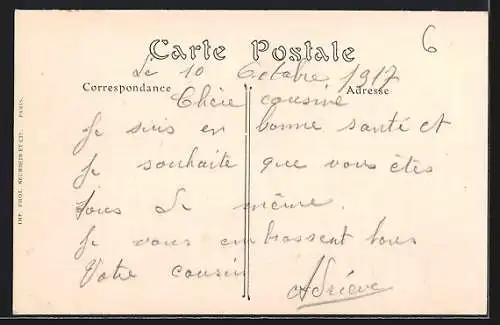 6
Carte Postale
Le 10 Octobre 1917
Correspondance Adresse
Chère cousine
Je suis en bonne santé et
je souhaite que vous êtes
tous de même.
Je vous embrassent tous
Votre cousin
IMP. PHOT. NEURDEIN ET CIE. PARIS.